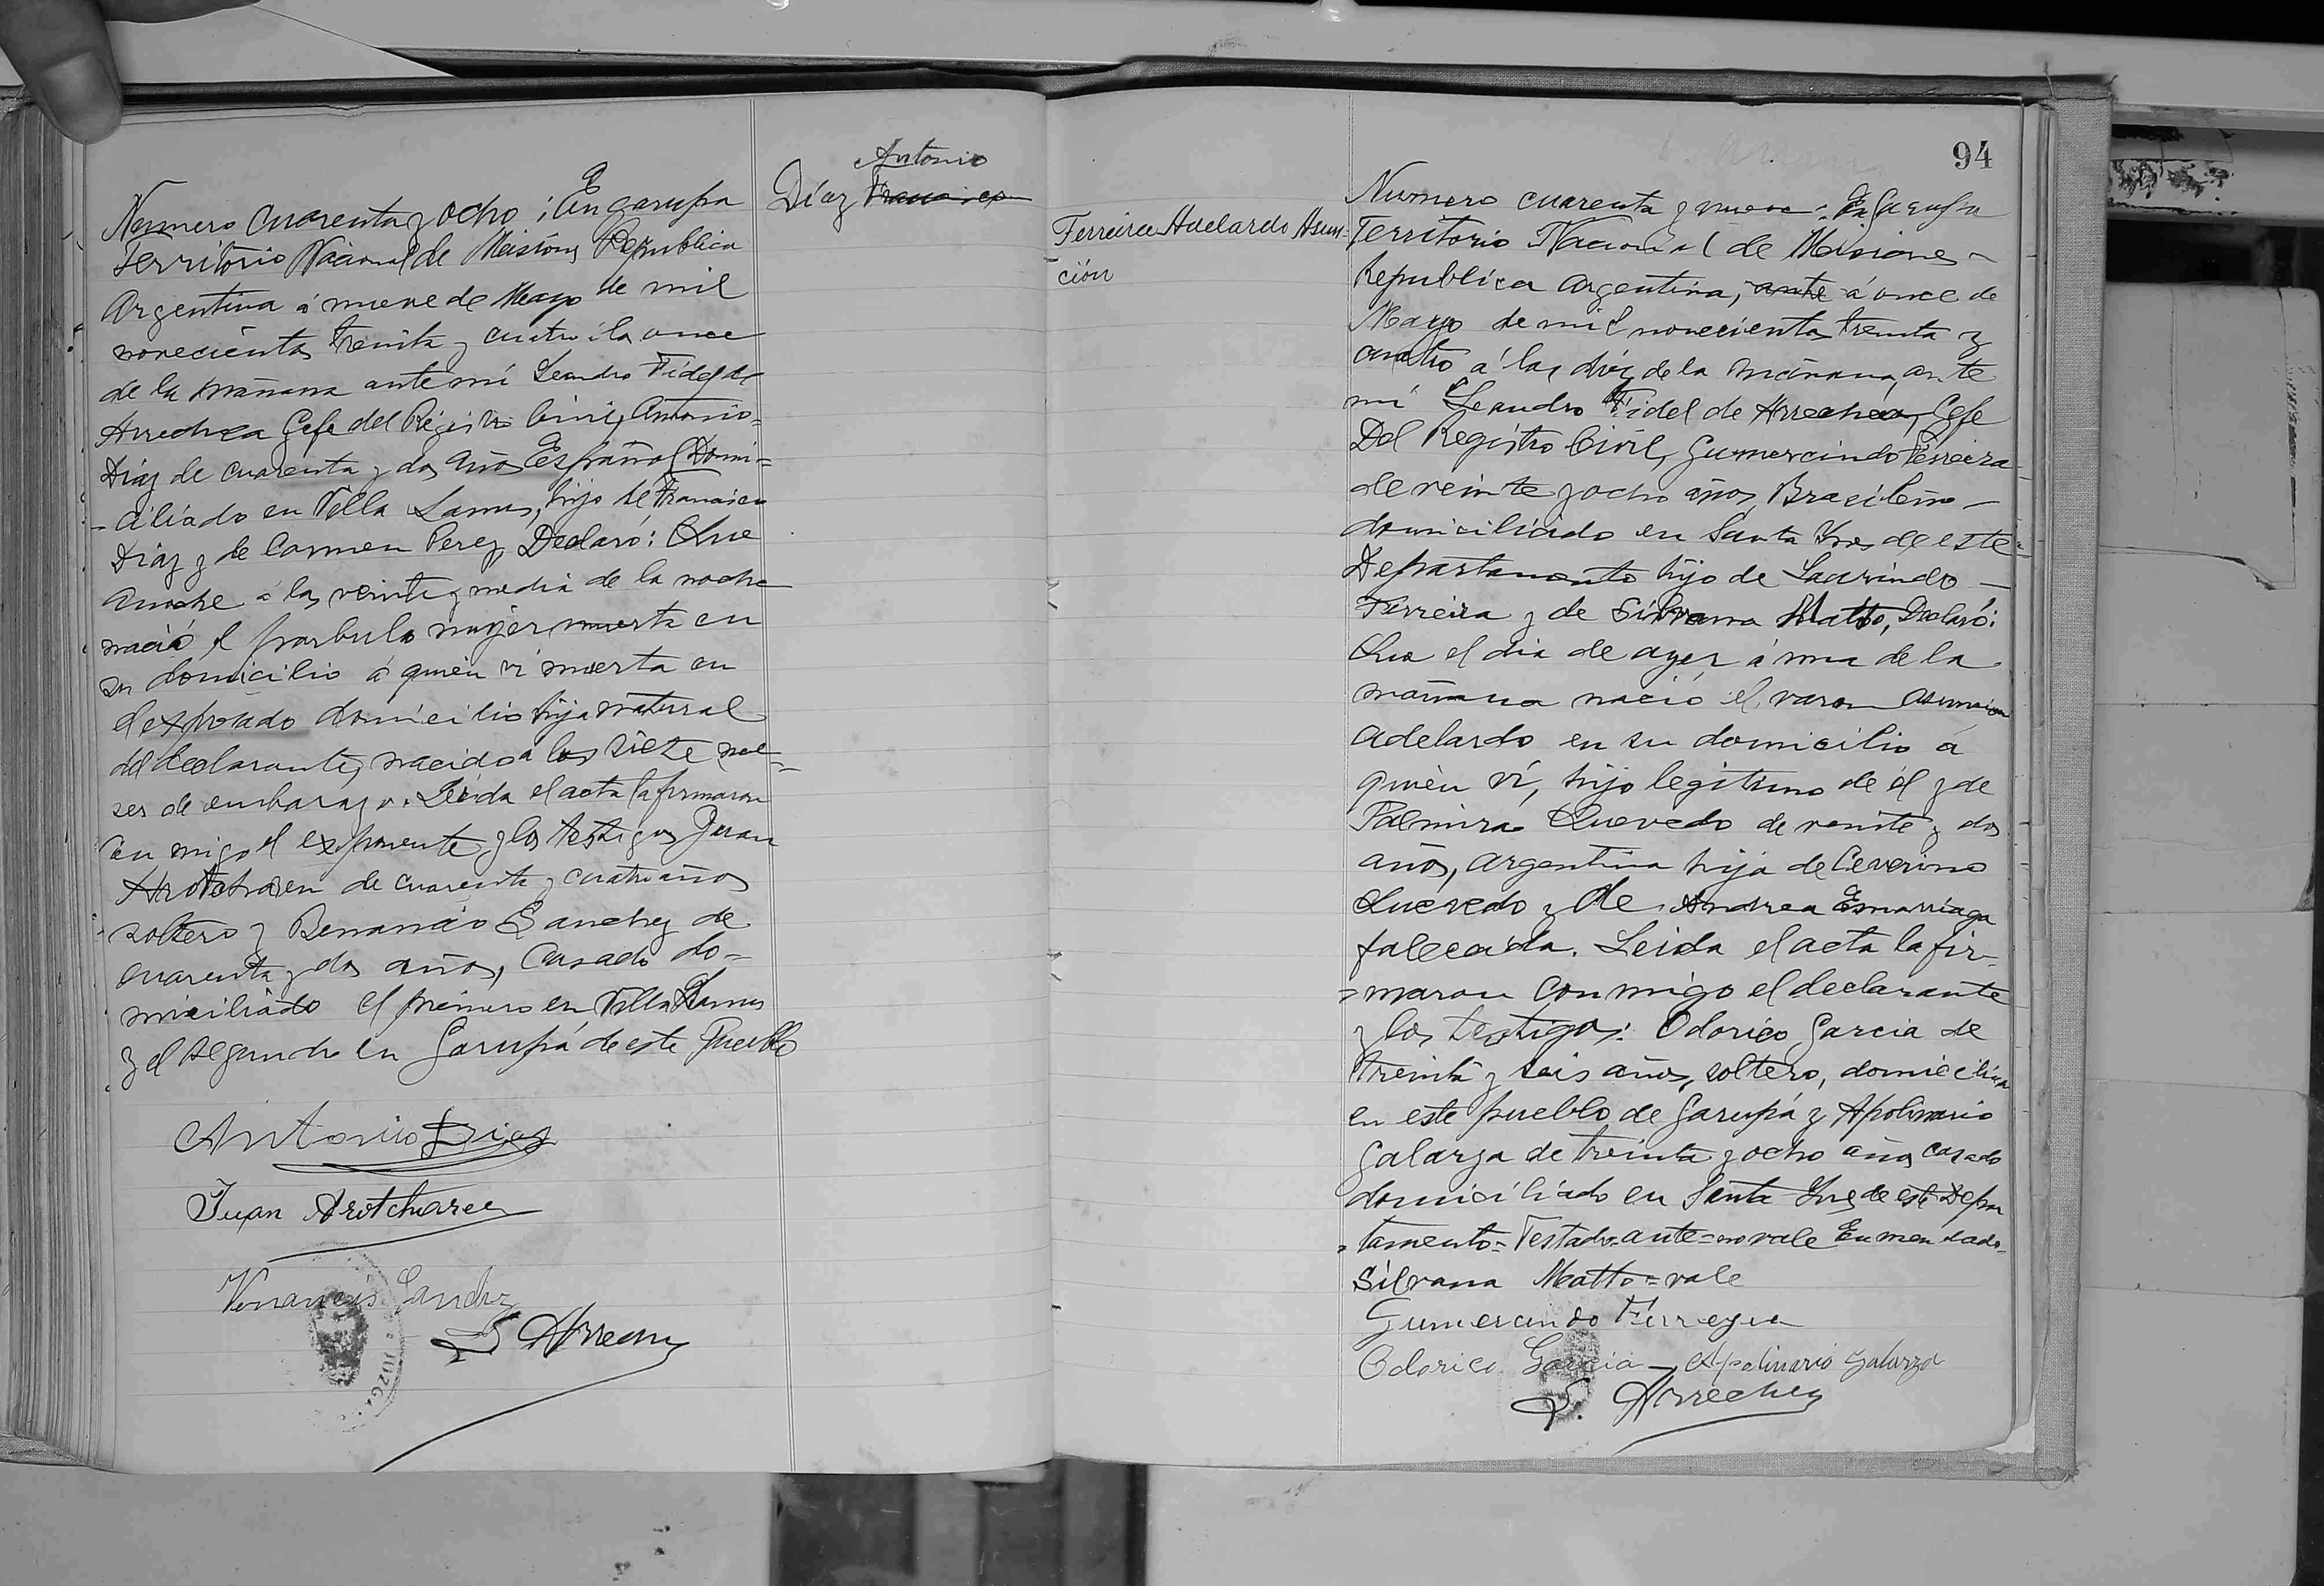 Numero cuarenta y ocho: En garupa
Territorio Nacional de Misiones Republica
Argentina á nueve de Mayo de mil
novecientos treinta y cuatro á las once
de la mañana ante mi Leandro Fidel de
Arrechea Gefe del Registro Civil, Antonio=
Díaz de cuarenta y dos años Español Domi=
-ciliado en Villa Lanus, hijo de Francisco
Díaz y de Carmen Perez, Declaró: Que
anoche á las veinte y media de la noche
nació el parbulo mujer muerta en
su domicilio á quien vi muerta en
el expresado domicilio hija natural
del declarante, nacido a los siete me=
ses de embarazo. Leida el acta la firmaron
con migo el exponente y los testigos Juan
Arotcharen de cuarenta y cuatro años
soltero y Benancio Sanchez de
cuarenta y dos años, Casado do=
miciliado el primero en Villa Lanus
y el segundo en Garupá de este Pueblo
Antonio Diaz
Juan Arotcharen
Venancio Sanchez
Arrechea
JUZGA
Antonio
Díaz Francisco
94
Ferreira Adelardo Asun=
ción
Numero cuarenta y nueve: En Garupa
Territorio Nacional de Misiones
Republica Argentina, ante á once de
Mayo de mil novecientos treinta y
cuatro á las diez de la mañana, ante
mi Leandro Fidel de Arrechea, Gefe
Del Registro Civil, Gumercindo Ferreira
de veinte y ocho años, Brasileño
domiciliado en Santa Ines de este
Departamento hijo de Laurindo
Ferreira y de Silvana Matto, Declaró:
Que el dia de ayer á una de la
mañana nació el varon Asuncion
Adelardo en su domicilio á
quien vi, hijo legitimo de él y de
Palmira Quevedo de veinte y dos
años, argentina hija de Ceverino
Quevedo y de Andrea
falecida. Leida el acta la fir=
=maron conmigo el declarante
y los testigos: Odorico Garcia de
treinta y seis años, soltero, domicilia
en este pueblo de Garupá y Apolinario
Galarza de treinta y ocho años casado
domiciliado en Santa Ines de este Depar
tamento= Testado=ante=no vale Enmendado=
Silvana Matto=vale
Gumercindo Ferreyra
Odorico Garcia Apolinario Galarza
Arrechea